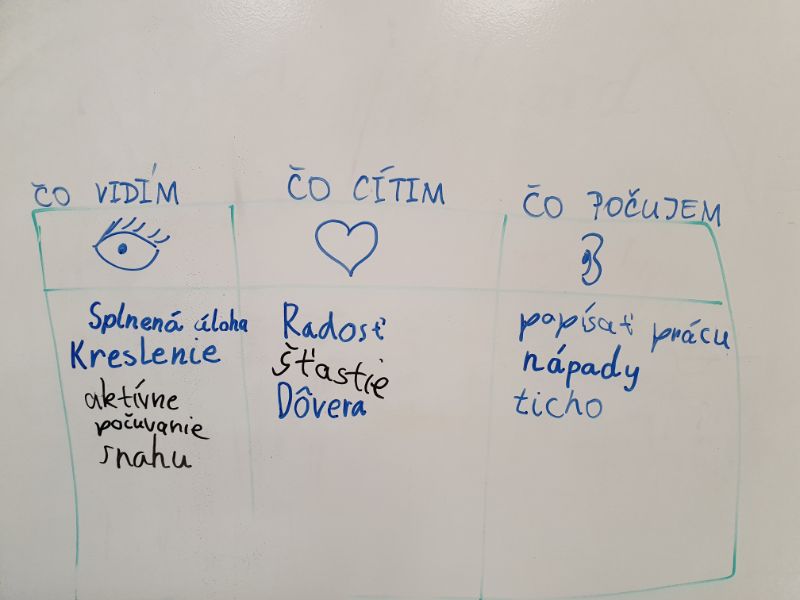 ČO VIDÍM
ČO CÍTIM
ČO POČUJEM
Splnená úloha
Kreslenie
aktívne
počuvanie
snahu
Radosť
šťastie
Dôvera
popísať prácu
nápady
ticho